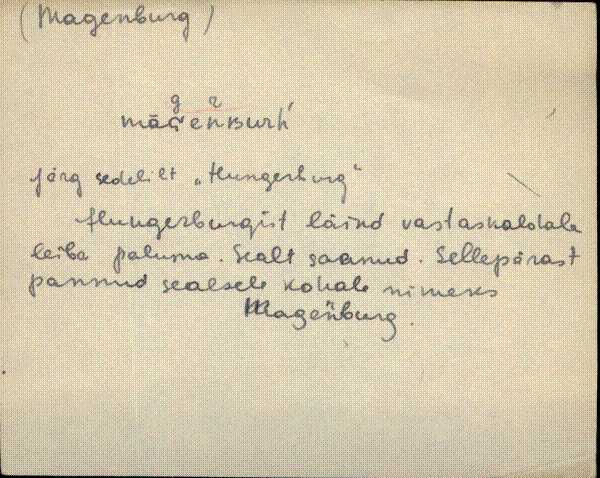 (Magenburg)
g r
māGenburh'
järg sedelilt „Hungerburg"
Hungerburgist läind vastaskaldale
leiba paluma. Sealt saanud. Sellepärast
pannud sealsele kohale nimeks
Magenburg.